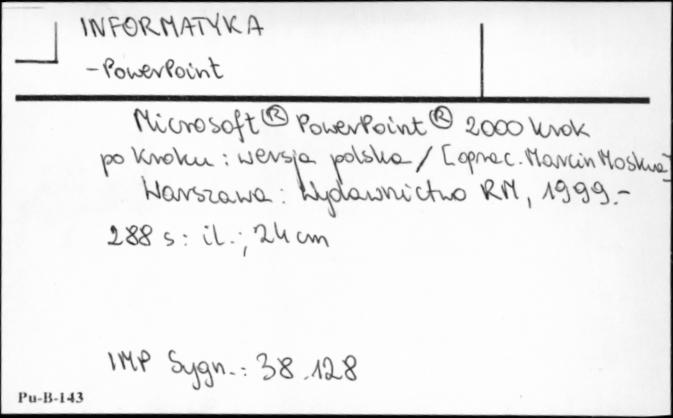 INFORMATYKA
-PowerPoint
Microsoft® PowerPoint® 2000 krok
po kroku : wersja polska / [oprac. Marcin Moskwa]
Warszawa : Wydawnictwo RM, 1999.-
288 s : il. ; 24 cm
IMP Sygn.: 38.128
Pu-B-143